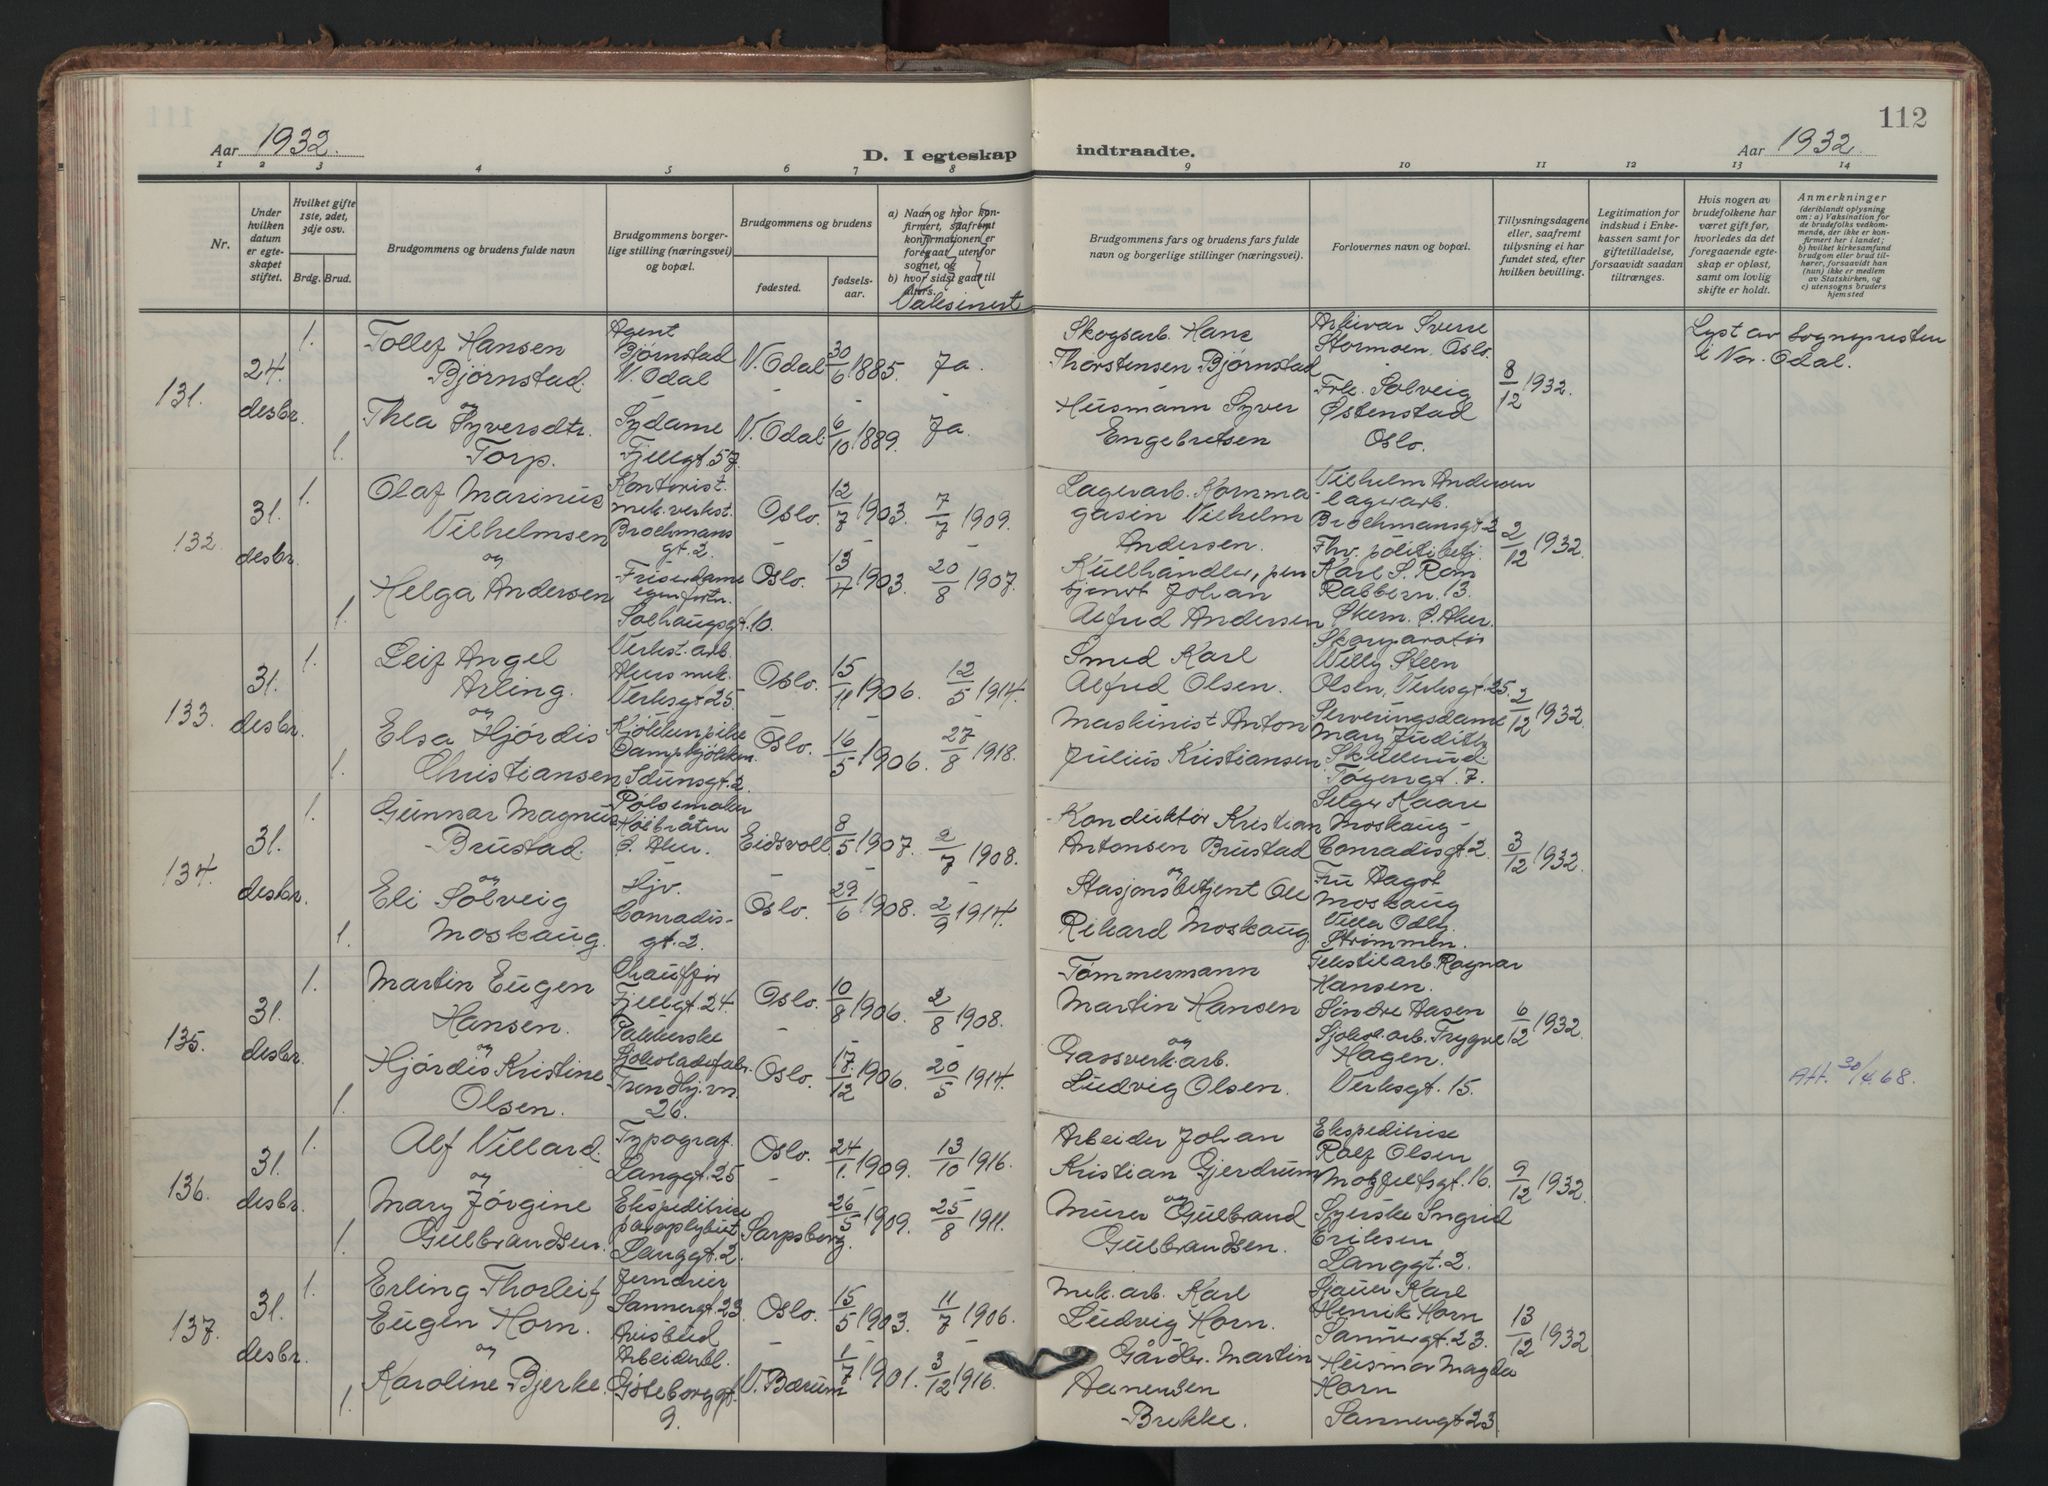 112
Aar 1932.
D. I egteskap
indtraadte.
Aar 1932.
1 2 3 4 5 6 7 8 9 10 11 12 13 14
Nr.
Under hvilken datum er egteskapet stiftet.
Hvilket gifte 1ste, 2det, 3dje osv.
Brdg. Brud.
Brudgommens og brudens fulde navn
Brudgommens borgerlige stilling (næringsvei) og bopæl.
Brudgommens og brudens
fødested.
fødselsaar.
a) Naar og hvor konfirmert, saafremt konfirmationen er foregaat utenfor sognet, og
b) hvor sidst gaat til alters.
Vaksinert
Brudgommens fars og brudens fars fulde navn og borgerlige stillinger (næringsvei).
Forlovernes navn og bopæl.
Tillysningsdagene eller, saafremt tillysning ei har fundet sted, efter hvilken bevilling.
Legitimation for indskud i Enkekassen samt for giftetilladelse, forsaavidt saadan tiltrænges.
Hvis nogen av brudefolkene har været gift før, hvorledes da det foregaaende egteskap er opløst, samt om lovlig skifte er holdt.
Anmerkninger
(deriblandt oplysning om: a) Vaksination for de brudefolks vedkommende, der ikke er konfirmert her i landet; b) hvilket kirkesamfund brudgom eller brud tilhører, forsaavidt han (hun) ikke er medlem av Statskirken, og c) utensogns bruders hjemsted
131.
24. desbr.
1.
Tollef Hansen
Bjørnstad.
og
Agent
Bjørnstad
N. Odal
N. Odal
30/6 1885.
Ja.
Skogsarb. Hans
Thorstensen Bjørnstad
Arkivar Sverre
Stormoen, Oslo.
8/12 1932.
Lyst av sognepresten
i Nor. Odal.
1.
Thea Syversdtr.
Torp.
Sydame
Fjellgt. 57.
N. Odal
6/10 1889.
Ja.
Husmann Syver
Engebretsen
Frk. Solveig
Østenstad
Oslo.
132.
31. desbr.
1.
Olaf Marinus
Vilhelmsen
og
Kontorist.
mek. verkst.
Brochmans
gt. 2.
Oslo.
12/7 1903.
7/7 1909.
Lagerarb. Kornma-
gasin Vilhelm
Andersen.
Vilhelm Andersen
lagerarb.
Brochmansgt. 2
2/12 1932.
1.
Helga Andersen
Friserdame
egen fortn.
Solhaugsgt. 10.
Oslo.
13/4 1903.
20/8 1907.
Kullhandler, pen
sjonert Johan
Alfred Andersen
Fhv. politibetj.
Karl S. Rom
Rabbern. 13.
Økern. Ø. Aker.
133.
31. desbr.
1.
Leif Angel
Arling.
og
Verkst. arb.
Akers mek.
Verksgt. 25
Oslo.
15/11 1906.
12/5 1914.
Smed Karl
Alfred Olsen.
Skoreparatør
Willy Steen
Olsen, Verksgt. 25.
2/12 1932.
1.
Elsa Hjördis
Christiansen
Kjökkenpike
Dampkjökken.
Idunsgt. 2.
Oslo.
16/5 1906.
27/8 1918.
Maskinist Anton
Julius Kristiansen
Serveringsdame
Mary Judith
Skullerud.
Tøyengt. 7.
134.
31. desbr.
1.
Gunnar Magnus
Brustad.
og
Pølsemaker
Høibråten
Ø. Aker.
Eidsvoll.
8/5 1907.
2/7 1908.
Konduktør Kristian
Antonsen Brustad
og
Selger Kaare
Moskaug
Conradisgt. 2.
3/12 1932.
1.
Eli Solveig
Moskaug.
Hjv.
Conradis-
gt. 2.
Oslo.
29/6 1908.
2/9 1914.
Stasjonsbetjent Ole
Rikard Moskaug
Fru Dagot
Moskaug
Villa Odly.
Strømmen.
135.
31. desbr.
1.
Martin Eugen
Hansen.
og
Chauffør
Fjellgt. 24
Oslo.
10/8 1906.
2/8 1908.
Tømmermann
Martin Hansen
og
Tekstilarb. Ragnar
Hansen.
Søndre Aasen
6/12 1932.
1.
Hjørdis Kristine
Olsen.
Pakkerske
Sjokoladefabr.
Trondhj.vn.
26.
Oslo.
17/12 1906.
20/5 1914.
Gassverk.arb.
Ludvig Olsen.
Sjokol.arb. Trygve
Hagen.
Verksgt. 15.
Att. 30/4.68.
136.
31. desbr.
1.
Alf Villard.
og
Typograf.
Langgt. 25
Oslo.
24/1. 1909.
13/10 1916.
Arbeider Johan
Kristian Gjerdrum
og
Ekspeditrise
Rolf Olsen
Motzfeltsgt. 16.
9/12 1932.
1.
Mary Jørgine
Gulbrandsen.
Ekspeditrise
Langgt. 2.
Sarpsborg.
26/5 1909.
25/8 1911.
Murer Gulbrand
Gulbrandsen.
Syerske Ingrid
Eriksen
Langgt. 2.
137.
31. desbr.
1.
Erling Thorleif
Eugen Horn.
og
Jerndreier
Sannergt. 23.
Oslo.
15/5 1903.
11/7 1906.
Mek. arb. Karl
Ludvig Horn.
Sjauer Karl
Henrik Horn
Sannergt. 23.
13/12 1932.
1.
Karoline Bjerke.
Avisbud
Arbeiderbl.
Göteborggt.
9.
V. Bærum
1/7 1901.
3/12 1916.
Gårdbr. Martin
Aanensen
Brekke.
Husmor Magda
Horn
Sannergt. 23